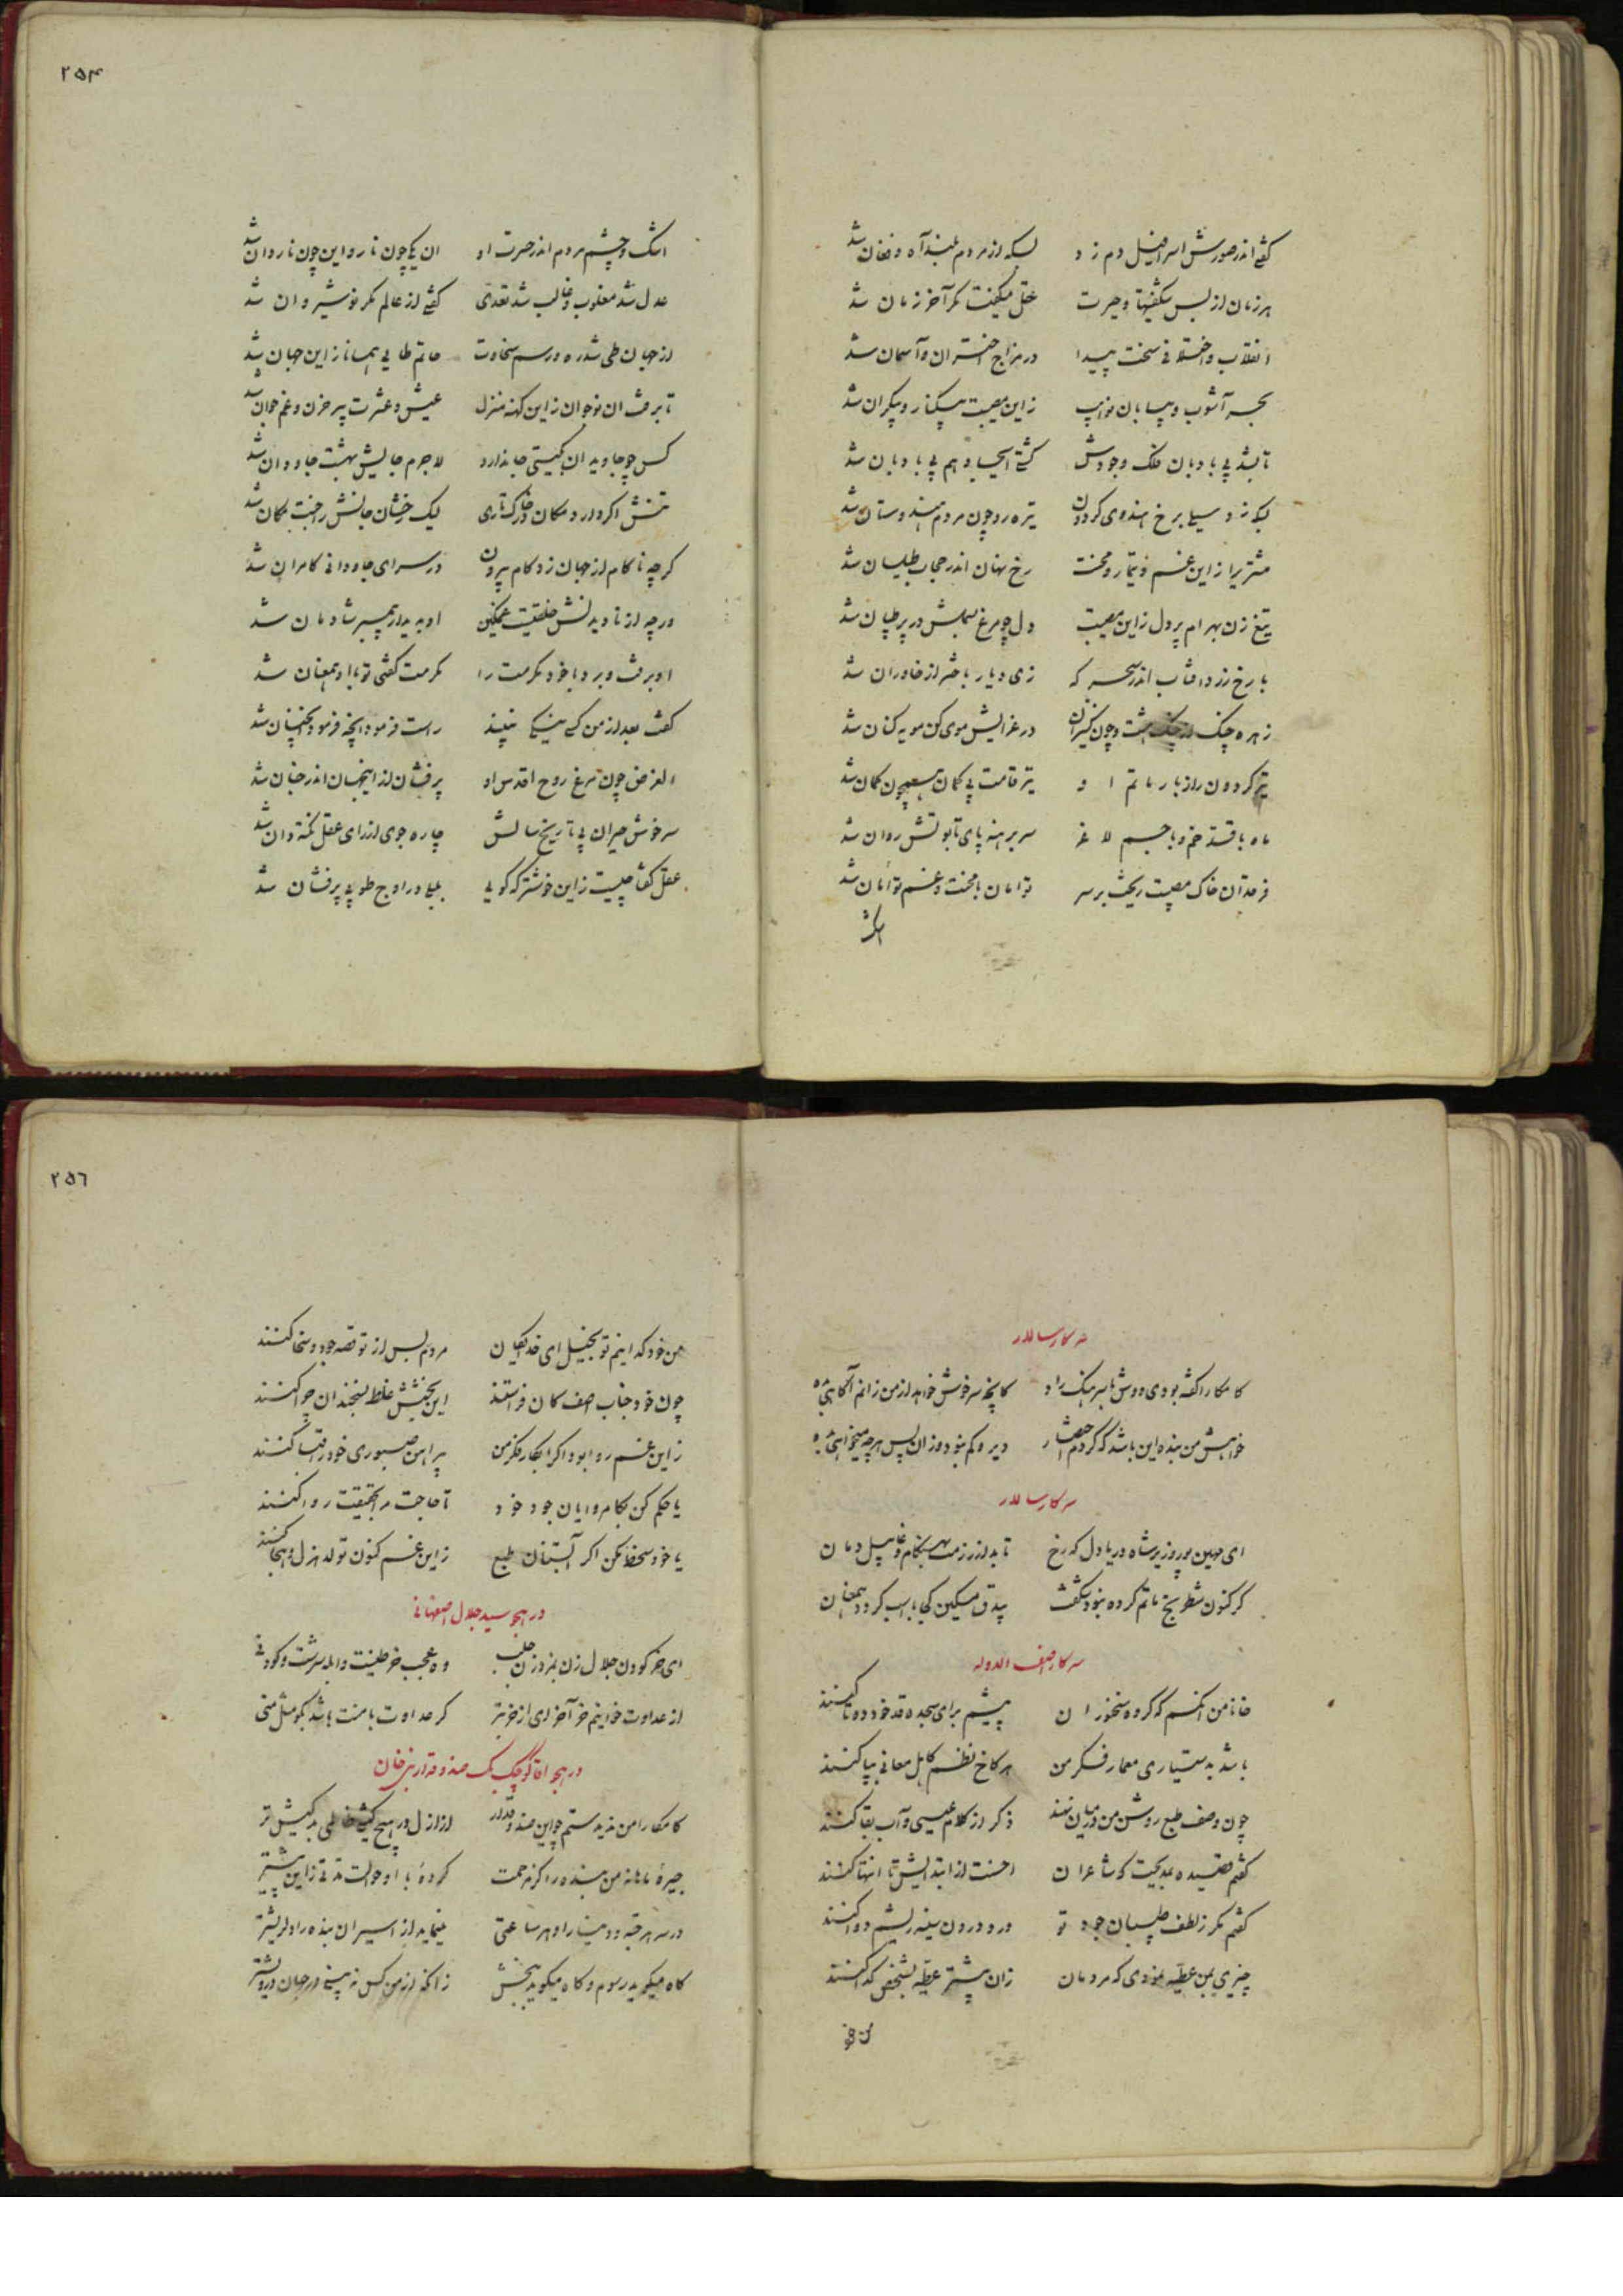 گفتی اندر صورش اسرافیل دم زد بسکه از مردم بلند آه و فغان شد
هر زمان از بس شگفتیها و حیرت عقل میگفت مگر آخر زمان شد
انقلاب و اختلافی سخت پیدا در مزاج اختران و آسمان شد
بحر آشوب و بیابان نوایب زین مصیبت بیکنار و بیکران شد
تا بشد بی بادبان فلک وجودش کشتی احسان هم بی بادبان شد
بسکه زد سیلی برخ هندوی گردون تیره رو چون مردم هندوستان شد
مشتری را زاین غم و تیمار و محنت رخ نهان اندر حجاب طیلسان شد
تیغ زن بهرام پر دل زاین مصیبت دل چو مرغ بسملش در بر طپان شد
با رخ زرد آفتاب اندر سحرگه زی دیار باختر از خاوران شد
زهره چنگ از چنگ هشت و چون کنیزان در عزایش موی کن مویه کنان شد
تیر گردون راز بار ماتم او تیر قامت بی گمان همچون کمان شد
ماه با قد خم و با جسم لاغر سر برهنه پای تابوتش روان شد
فرقدان خاک مصیبت ریخت بر سر توامان با محنت و غم توأمان شد
اشک
۲۵۴
اشک و چشم مردم اندر حسرت او ان یکی چون نار و این چون ناردان شد
عدل شد مغلوب و غالب شد تعدی گفتی از عالم مگر نوشیروان شد
از جهان طی شد ره و رسم سخاوت حاتم طایی همانا زاین جهان شد
تا برفت ان نوجوان زاین کهنه منزل عیش و عشرت پیر و حزن و غم جوان شد
کس چو جاویدان بگیتی جا ندارد لاجرم جایش بهشت جاودان شد
تنش اگر دارد مکان در خاک تاری لیک رخشان جانش را جنت مکان شد
گرچه ناکام از جهان زد کام بیرون در سرای جاودانی کامران شد
ورچه از نادیدنش خلقیست غمگین او بدیدار پیمبر شادمان شد
او برفت و برد با خود مکرمت را مکرمت گفتی تو با او همعنان شد
گفت بعد از من کسی نیکی نبیند راست فرمود انچه فرمود انچنان شد
الغرض چون مرغ روح اقدس او پرفشان از اینجهان اندر جنان شد
سرخوش حیران پی تاریخ سالش چاره جوی از رای عقل نکته دان شد
عقل گفتا چیست زاین خوشتر که گویی بلبلی در اوج طوبی پرفشان شد
سرکار سالار
کامکارا گفته بودی دوش با سرهنگ راد کانچه سرخوش خواهد از من زانم آگاهی بده
خواهش من بنده این باشد که کردم اختصار دیر و کم نبود وزان پس هر چه میخواهی بده
سرکار سالار
ای مهین پور وزیر شاه دریا دل که رخ تابد از رزمت بهنگام وغا پیل دمان
گر کنون شطرنج ماتم کرده نبود شگفت بیدق مسکین کجا با اسب گردد همعنان
سرکار آصف الدوله
خانا من انکسم که گروه سخنوران پیشم برای سجده قد خود دوتا کنند
باشد بدستیاری معمار فکر من هر کاخ نظم کاهل معانی بپا کنند
چون وصف طبع روشن من در میان نهند ذکر از کلام عیسی و آب بقا کنند
گفتم قصیده بمدیحت که شاعران احسنت از ابتدایش تا انتها کنند
گفتم مگر ز لطف طبیبان جود تو درد درون سینه ریشم دوا کنند
چیزی بمن عطیه نمودی که مردمان زان بیشتر عطیه بشخص گدا کنند
۲۵۶
من خود که اینم تو بخیل ای خدایگان مردم بس از تو قصه جود و سخا کنند
چون خود جناب آصف کان فراستند این بخشش غلط بسخندان چرا کنند
زاین غم روا بود اگر ابکار فکر من پیراهن صبوری خود را قبا کنند
یا حکم کن بکامروایان جود خود تا حاجت مرا بحقیقت روا کنند
یا خود سخط مکن اگر آبستنان طبع زاین غم کنون تولد هزل و هجا کنند
در هجو سید جلال اصفهانی
ای خر کودن جلال زن بمزد زن جلب وه عجب خر طینت و ابله سرشت و کودنی
از عداوت خواینم خر آخر ای از خر بتر گر عداوت با منت باشد بگو مثل منی
در هجو اقا کوچک بیک صندوقدار نبی خان
کامکارا من ندیدستم چو این صندوقدار از ازل در هیچ کیشی ظالمی بدکیش تر
جیره ماهانه من بنده را کز مرحمت کرده با او حوالت مدتی زاین پیشتر
در سر هر حبه و دینار او هر ساعتی مینماید از اسیران بنده را دلریشتر
گاه میگوید رسوم و گاه میگوید ببخش زانکه از من کس نه بینی در جهان درویشتر